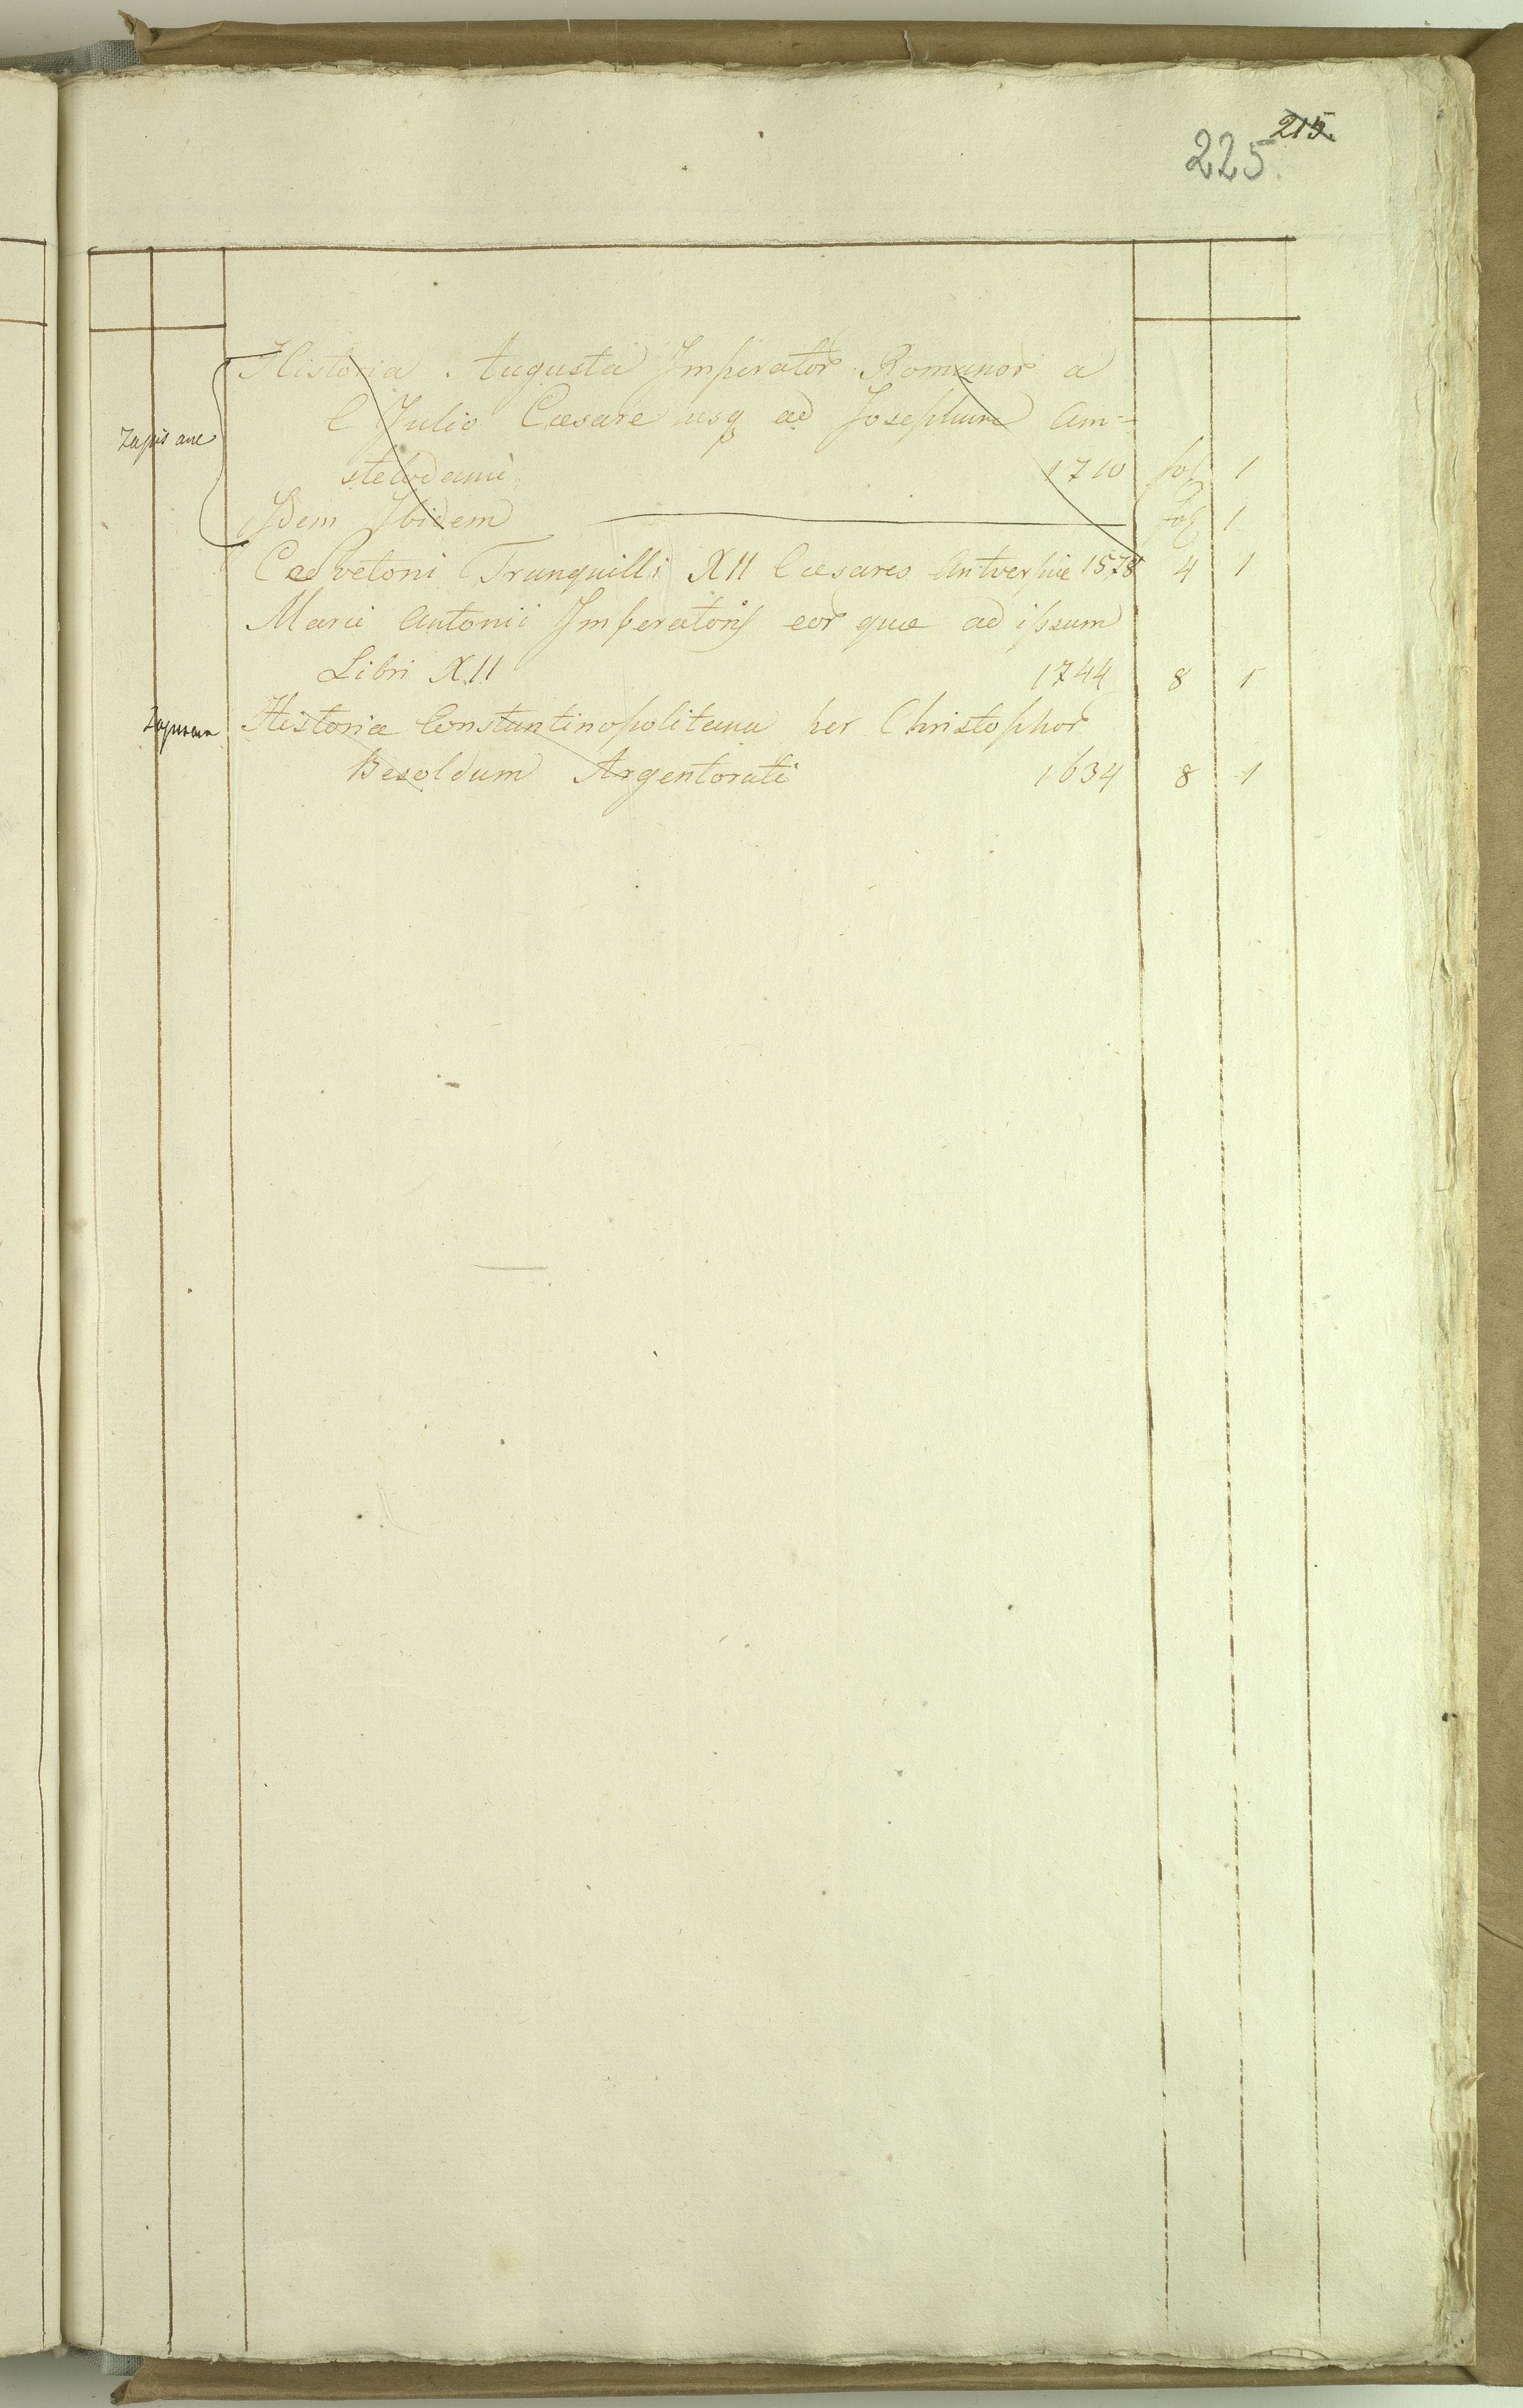 215.
225.
Historia Augusta Imperator Romanor a
C Julio Cæsare usq ad Josephum Am=
stelodami 1710 fol 1
Zapisane
Idem Ibidem fol 1
C Svetoni Tranquilli XII Cæsares Antverpiæ 1578 4 1
Marci Antonii Imperatoris eor quæ ad ipsum
Libri XII 1744 8 1
Zapisana Historia Constantinopolitana per Christophor
Besoldum Argentorati 1634 8 1